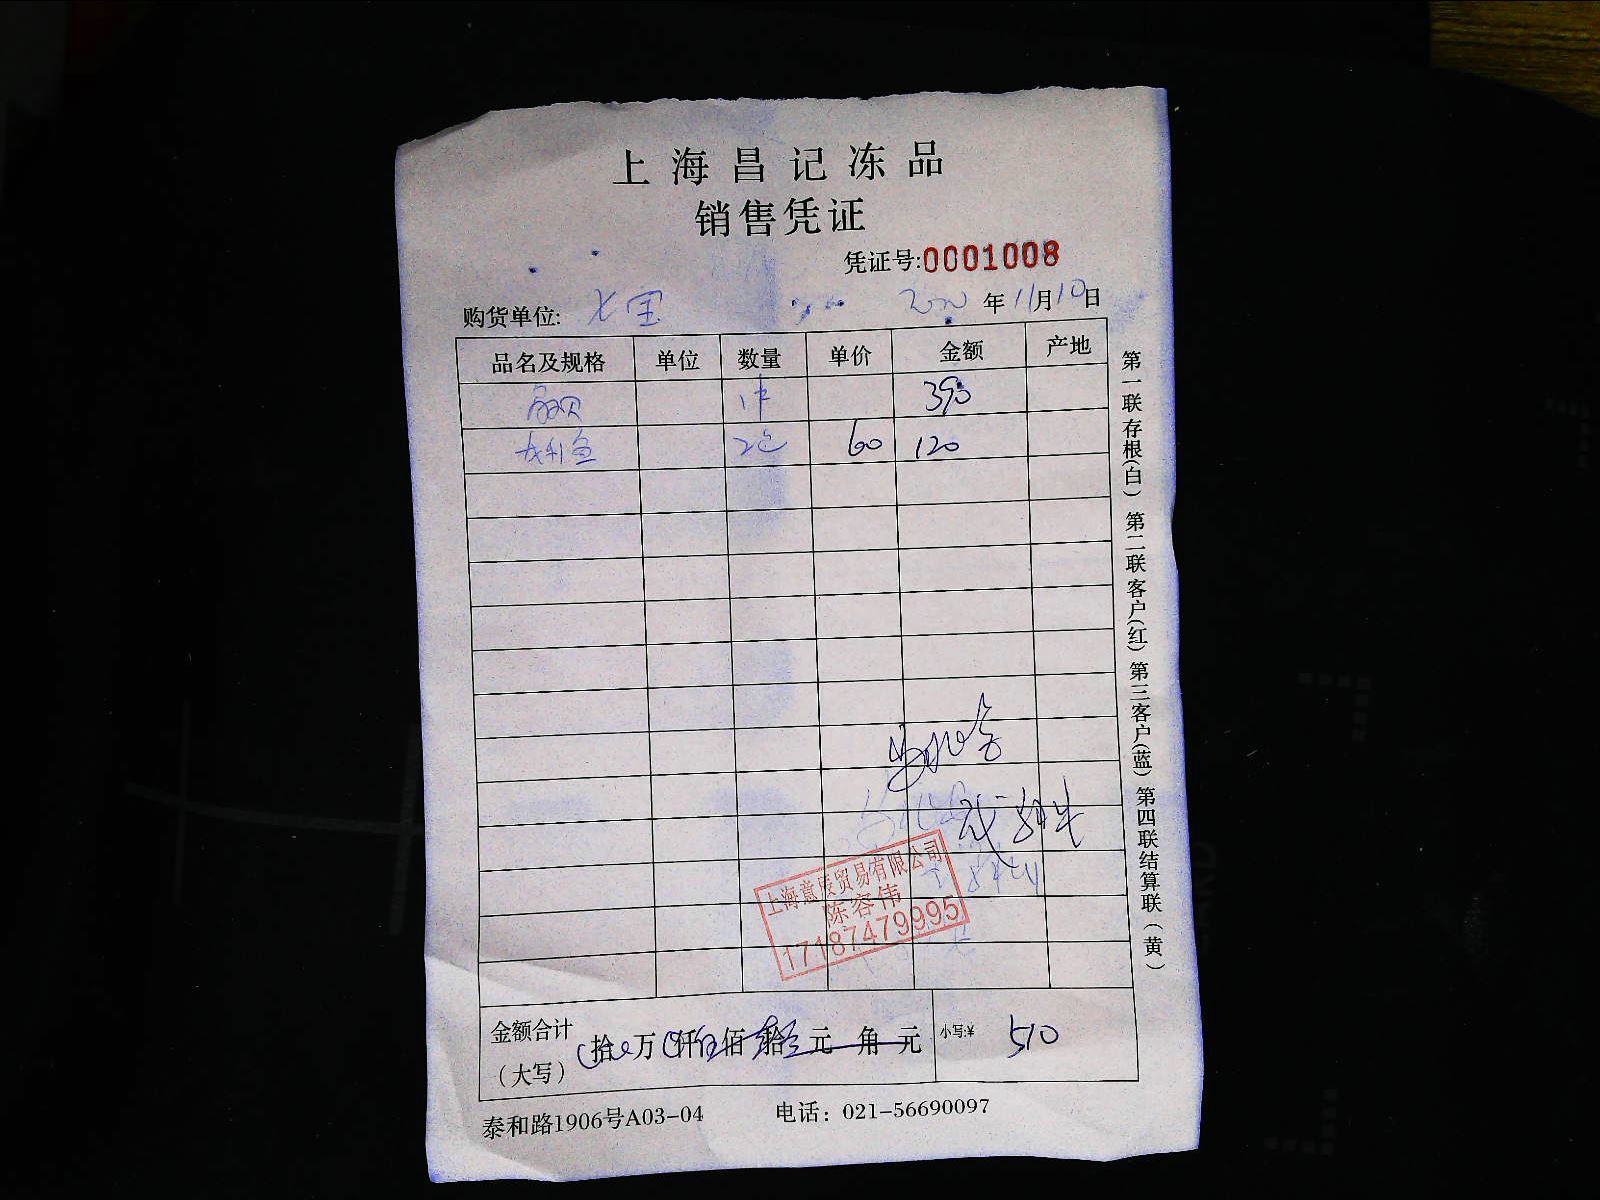 上海昌记冻品
销售凭证
凭证号:0001008
购货单位: 七宝 年11月10日
品名及规格 单位 数量 单价 金额 产地
扇贝 1件 390
龙利鱼 2包 60 120
上海意辰贸易有限公司
陈容伟
17187479995
金额合计 拾 万 仟 佰 拾 元 角 元 小写:¥ 510
（大写）
泰和路1906号A03-04 电话：021-56690097
第一联存根(白) 第二联客户(红) 第三客户(蓝) 第四联结算联(黄)